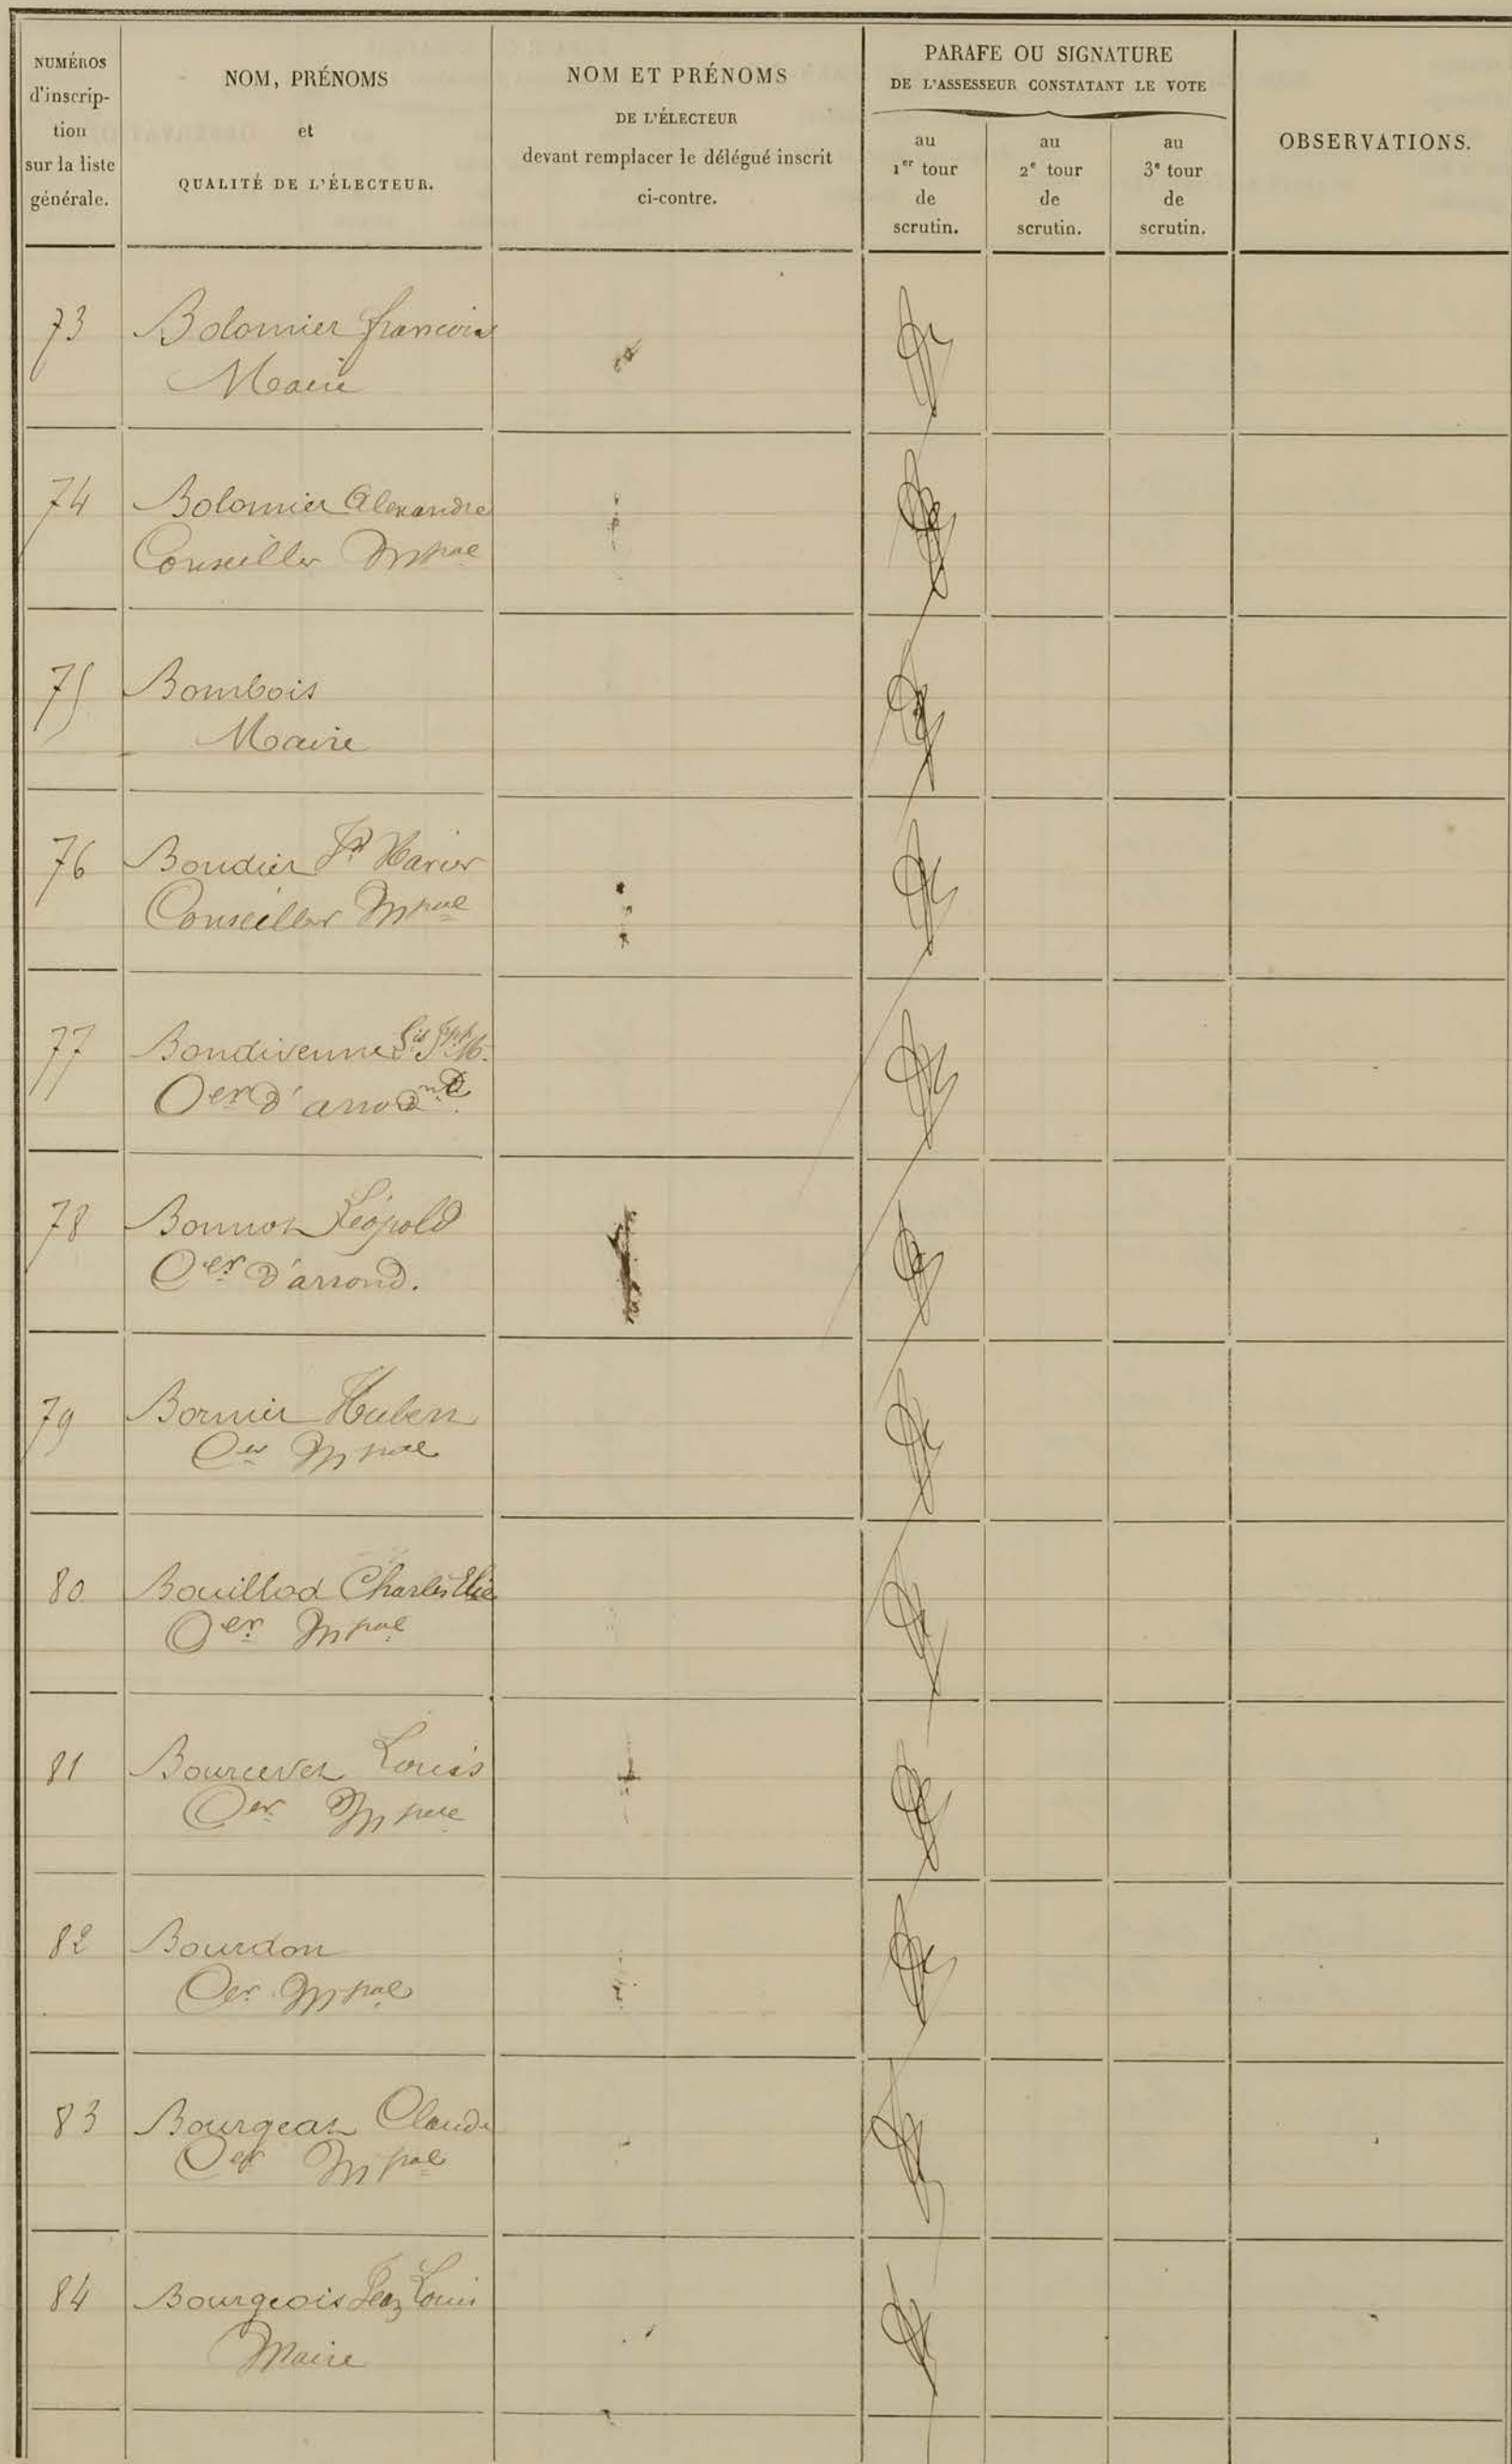 NUMÉROS
d'inscrip-
tion
sur la liste
générale.
NOM, PRÉNOMS
et
QUALITÉ DE L'ÉLECTEUR.
NOM ET PRÉNOMS
DE L'ÉLECTEUR
devant remplacer le délégué inscrit
ci-contre.
PARAFE OU SIGNATURE
DE L'ASSESSEUR CONSTATANT LE VOTE
au
1er tour
de
scrutin.
au
2e tour
de
scrutin.
au
3e tour
de
scrutin.
OBSERVATIONS.
73 Bolomier francois
Maire
74 Bolomier Alexandre
Conseiller Mpal
75 Bombois
Maire
76 Bondier
Conseiller Mpal
77 Bondivenne
Cer d'arrond
78 Bonnot Léopold
Cer d'arrond.
79 Bornier Hubert
Cer Mpal
80 Bouillod Charles Elie
Cer Mpal
81 Louis
Cer Mpal
82 Bourdon
Cer Mpal
83 Bourgeat Claude
Cer Mpal
84 Bourgeois Jean Louis
Maire